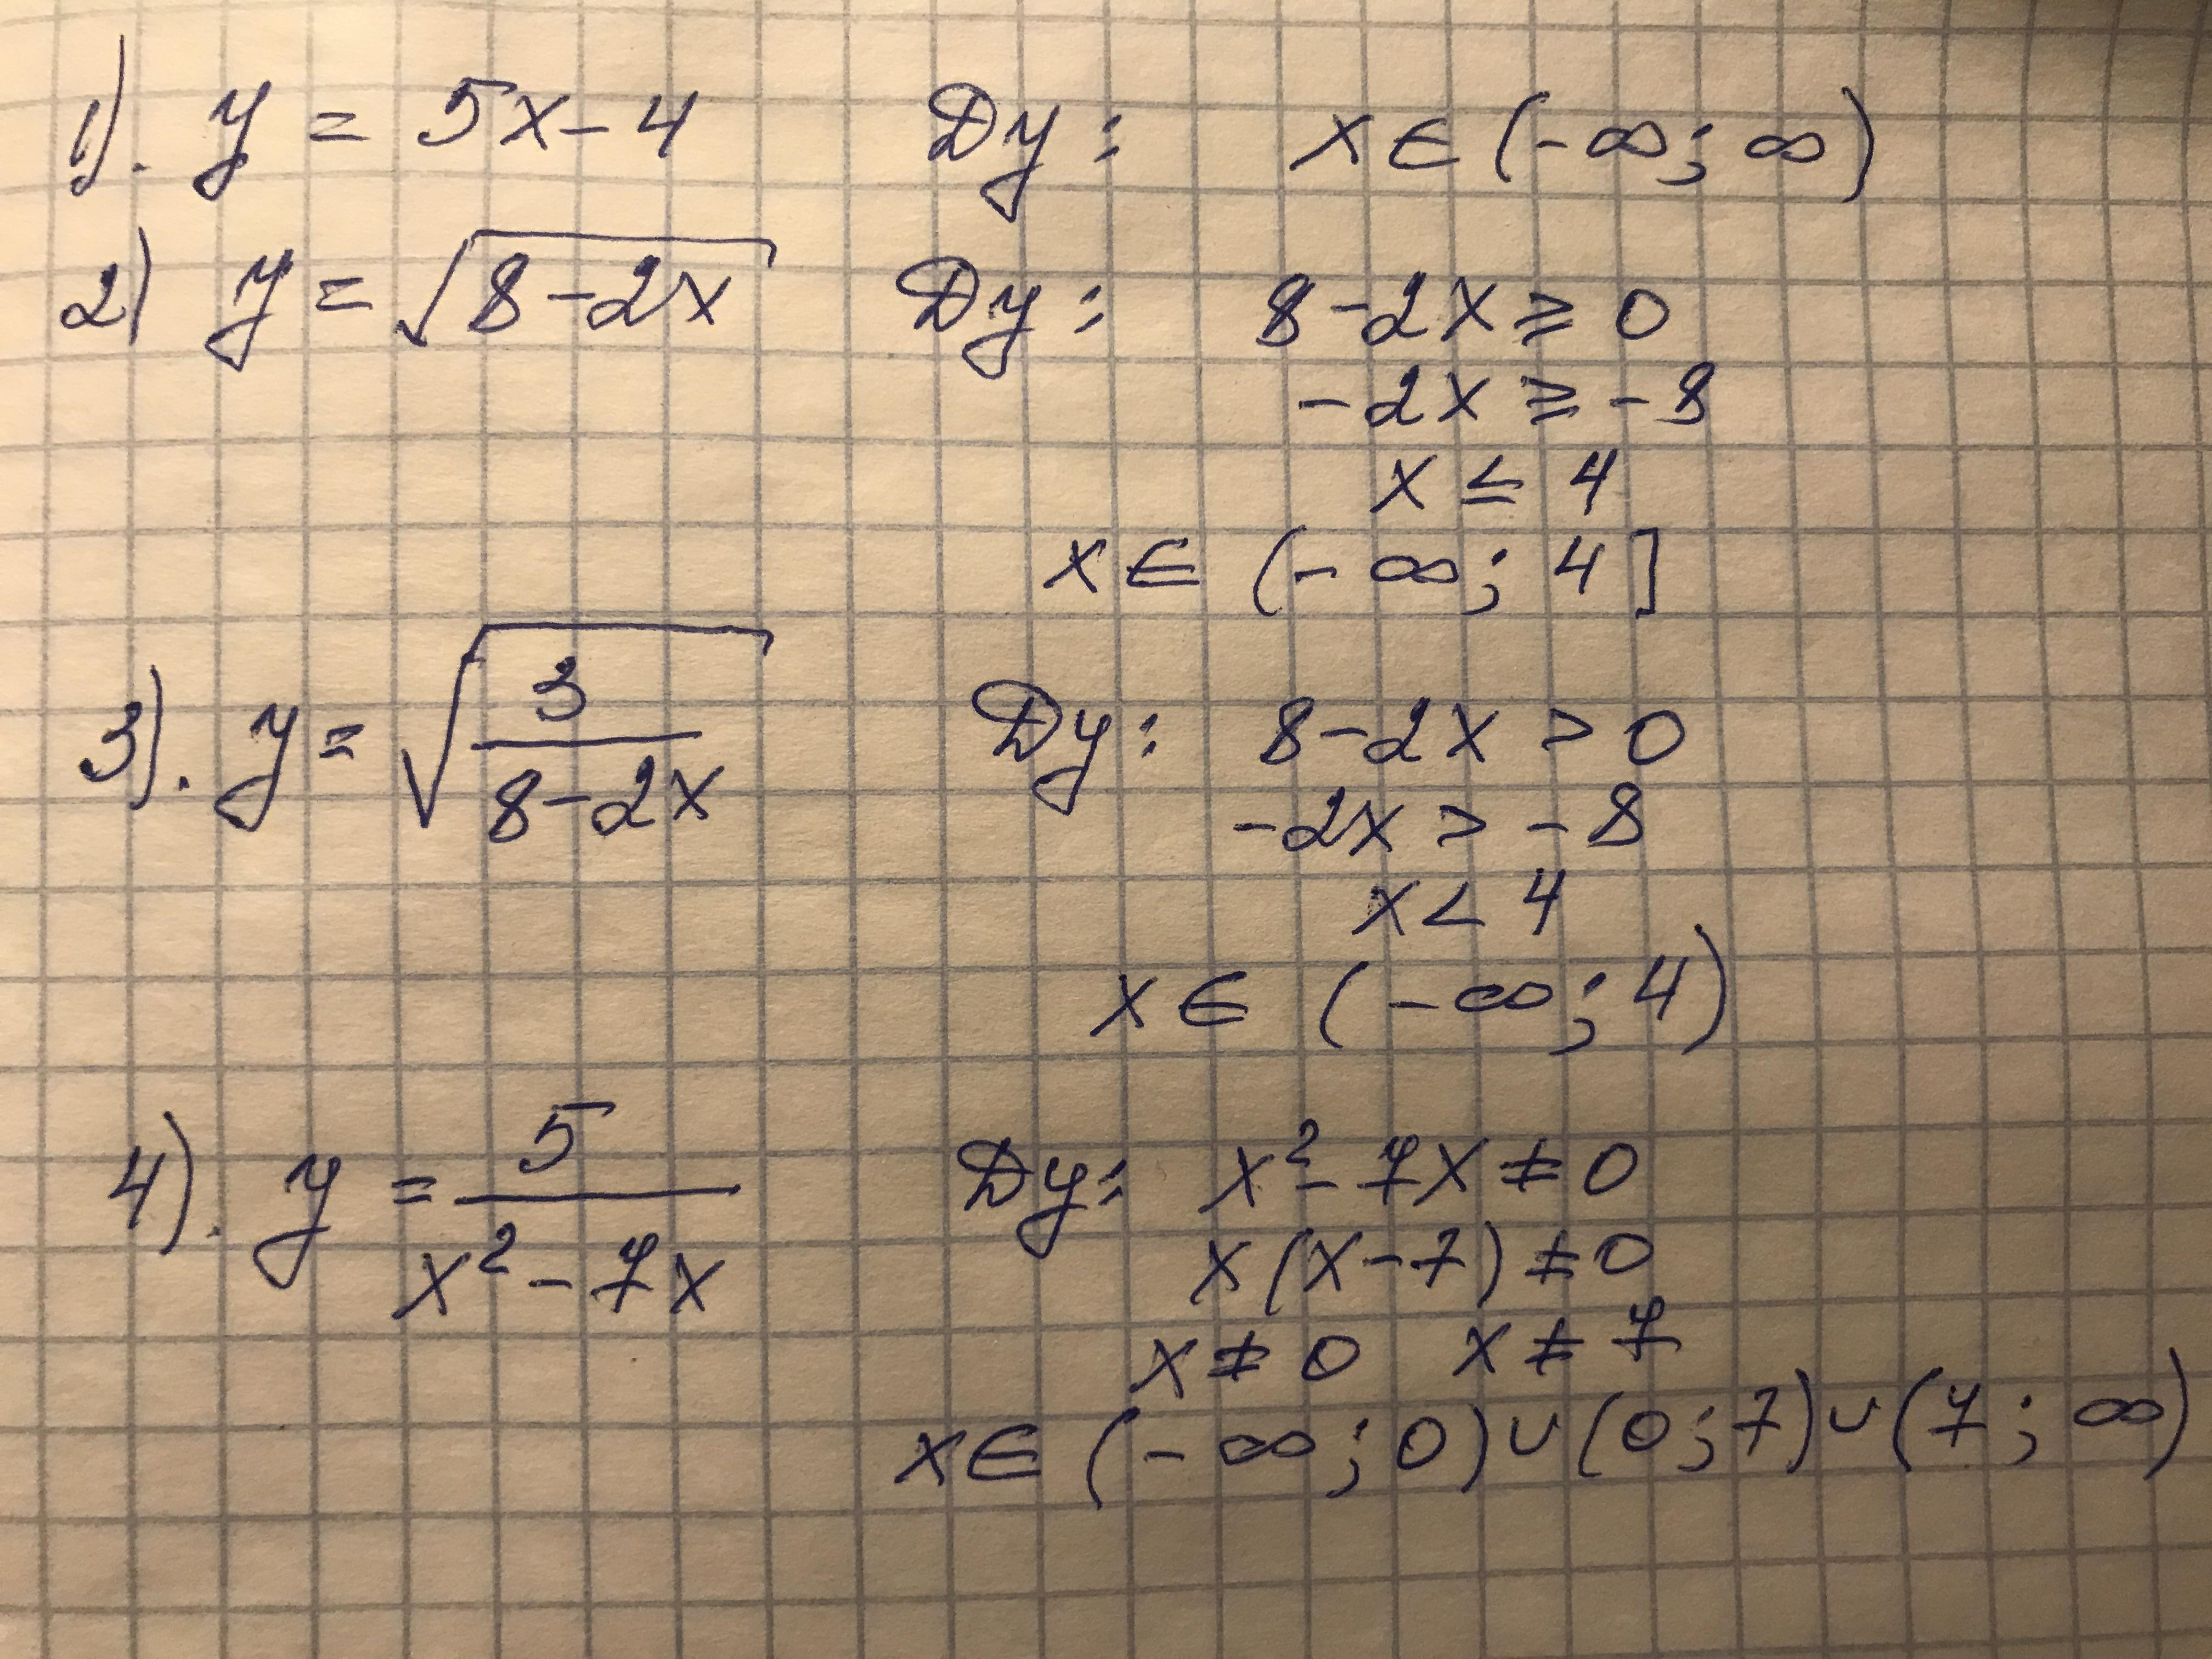 1). y = 5x-4 Dy: x∈(-∞; ∞)
2) y = √(8-2x) Dy: 8-2x ⩾ 0
-2x ⩾ -8
x ≤ 4
x∈ (-∞; 4]
3). y = √(3/(8-2x)) Dy: 8-2x > 0
-2x > -8
x < 4
x∈ (-∞; 4)
4). y = 5/(x²-7x) Dy: x²-7x ≠ 0
x(x-7) ≠ 0
x ≠ 0 x ≠ 7
x∈ (-∞; 0)∪(0; 7)∪(7; ∞)